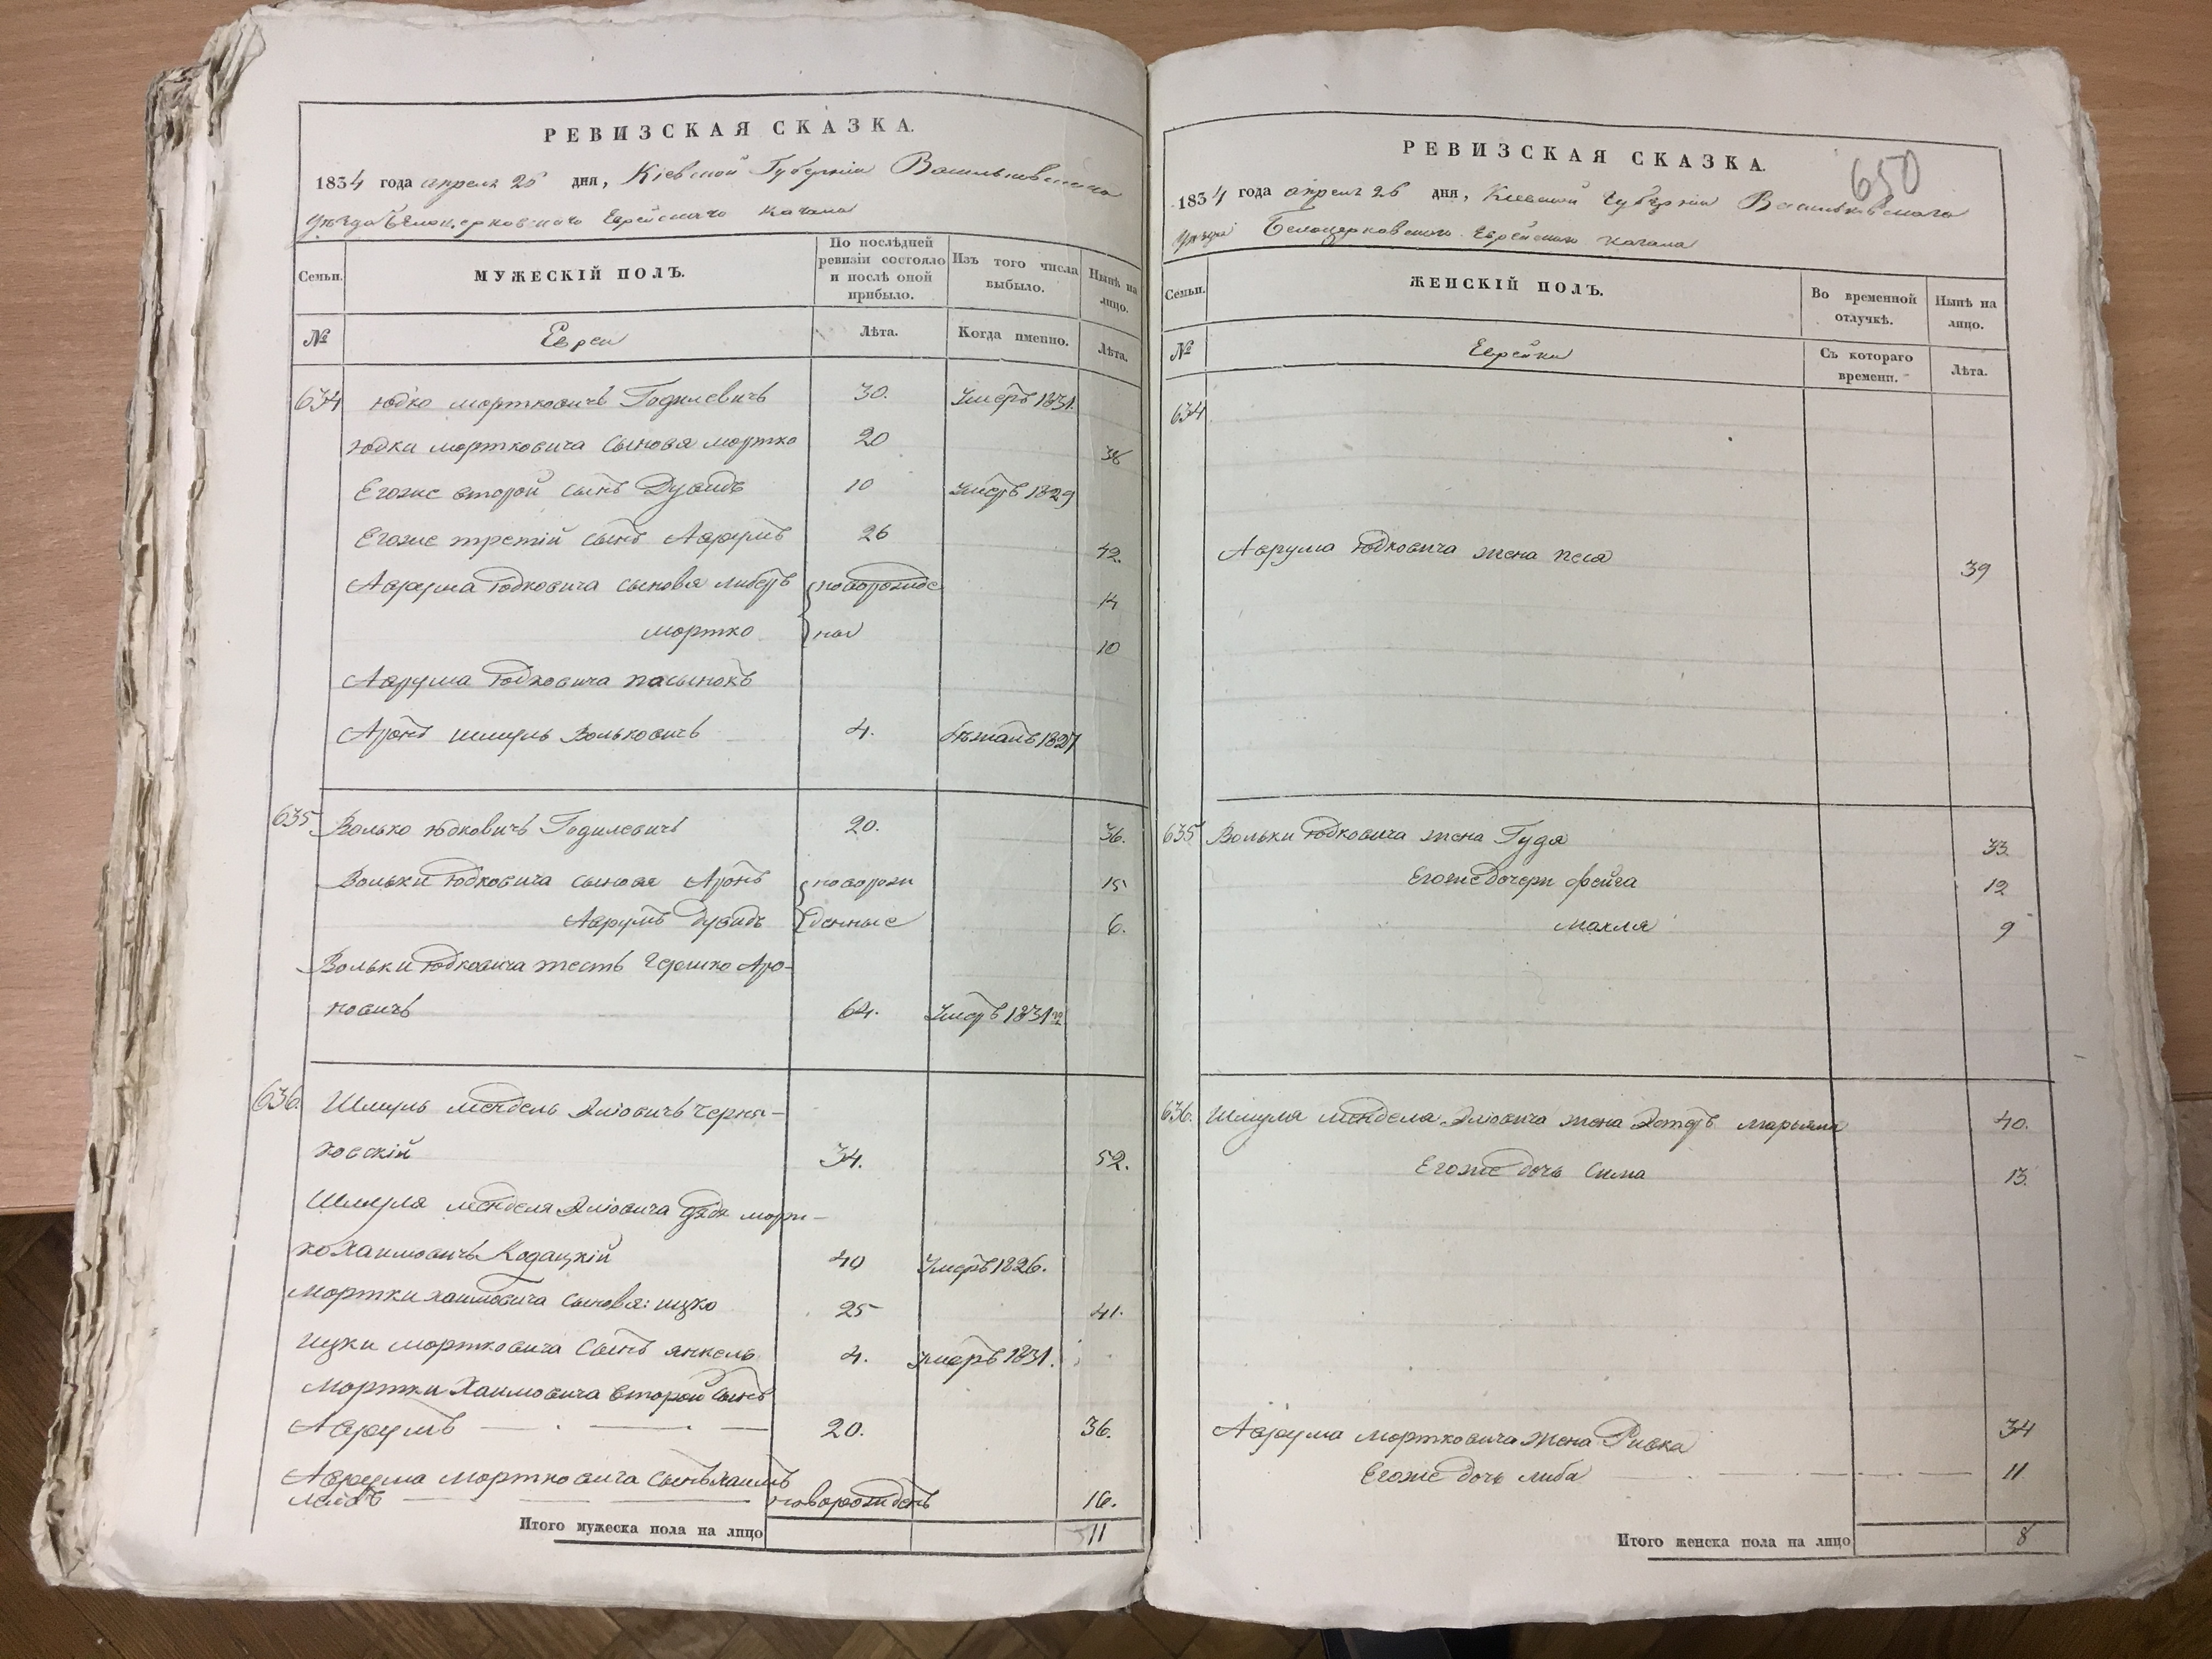 РЕВИЗСКАЯ СКАЗКА.
1834 года апреля 25 дня, Кіевской Губерніи Васильковскаго
Уѣзда Бѣлоцерковскаго Еврейскаго Кагала
Семьи.
МУЖЕСКІЙ ПОЛЪ.
По послѣдней ревизіи состояло и послѣ оной прибыло.
Изъ того числа выбыло.
Нынѣ на лицо.
№
Евреи
Лѣта.
Когда именно.
Лѣта.
634 Юдко Мортковичъ Годилевичъ 30. Умеръ 1831.
Юдки Мортковича сыновья Мортко 20 36
Егоже второй сынъ Дувидъ 10 Умеръ 1829
Егоже третій сынъ Аврумъ 26 42.
Аврума Юдковича сыновья Либеръ новорожде 14
Мортко ны 10
Аврума Юдковича пасынокъ
Аронъ Шмуль Вольковичъ 4. бѣжалъ 1827
635 Волько Юдковичъ Годилевичъ 20. 36.
Вольки Юдковича сыновья Аронъ новорож 15
Аврумъ Дувидъ денные 6.
Вольки Юдковича тесть Гершко Аро-
новичъ 64. Умеръ 1831
636. Шмуль Мендель Эліовичъ Черня-
ховскій 34. 52.
Шмуля Менделя Эліовича дядя Морт-
ко Хаимовичъ Кодацкій 40 Умеръ 1826.
Мортки Хаимовича сыновья: Ицко 25 41.
Ицки Мортковича сынъ Янкель 4. Умеръ 1831.
Мортки Хаимовича второй сынъ
Аврумъ 20. 36.
Аврума Мортковича сынъ Хаимъ
Лейбъ новорожденъ 16.
Итого мужеска пола на лицо 11
650
РЕВИЗСКАЯ СКАЗКА.
1834 года апреля 25 дня, Киевской Губерніи Васильковскаго
Уѣзда Белоцерковскаго Еврейскаго Кагала
Семьи.
ЖЕНСКІЙ ПОЛЪ.
Во временной отлучкѣ.
Нынѣ на лицо.
№
Еврейки
Съ котораго времени.
Лѣта.
634
Аврума Юдковича жена Песя 39
635 Вольки Юдковича жена Гудя 33.
Егоже дочери Фейга 12
Махля 9
636. Шмуля Менделя Эліовича жена Эстеръ Марьяма 40.
Егоже дочь Сима 13.
Аврума Мортковича жена Ривка 34
Егоже дочь Либа 11
Итого женска пола на лицо 8